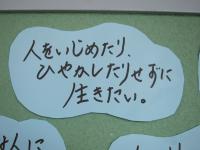 人をいじめたり、
ひやかしたりせずに
生きたい。